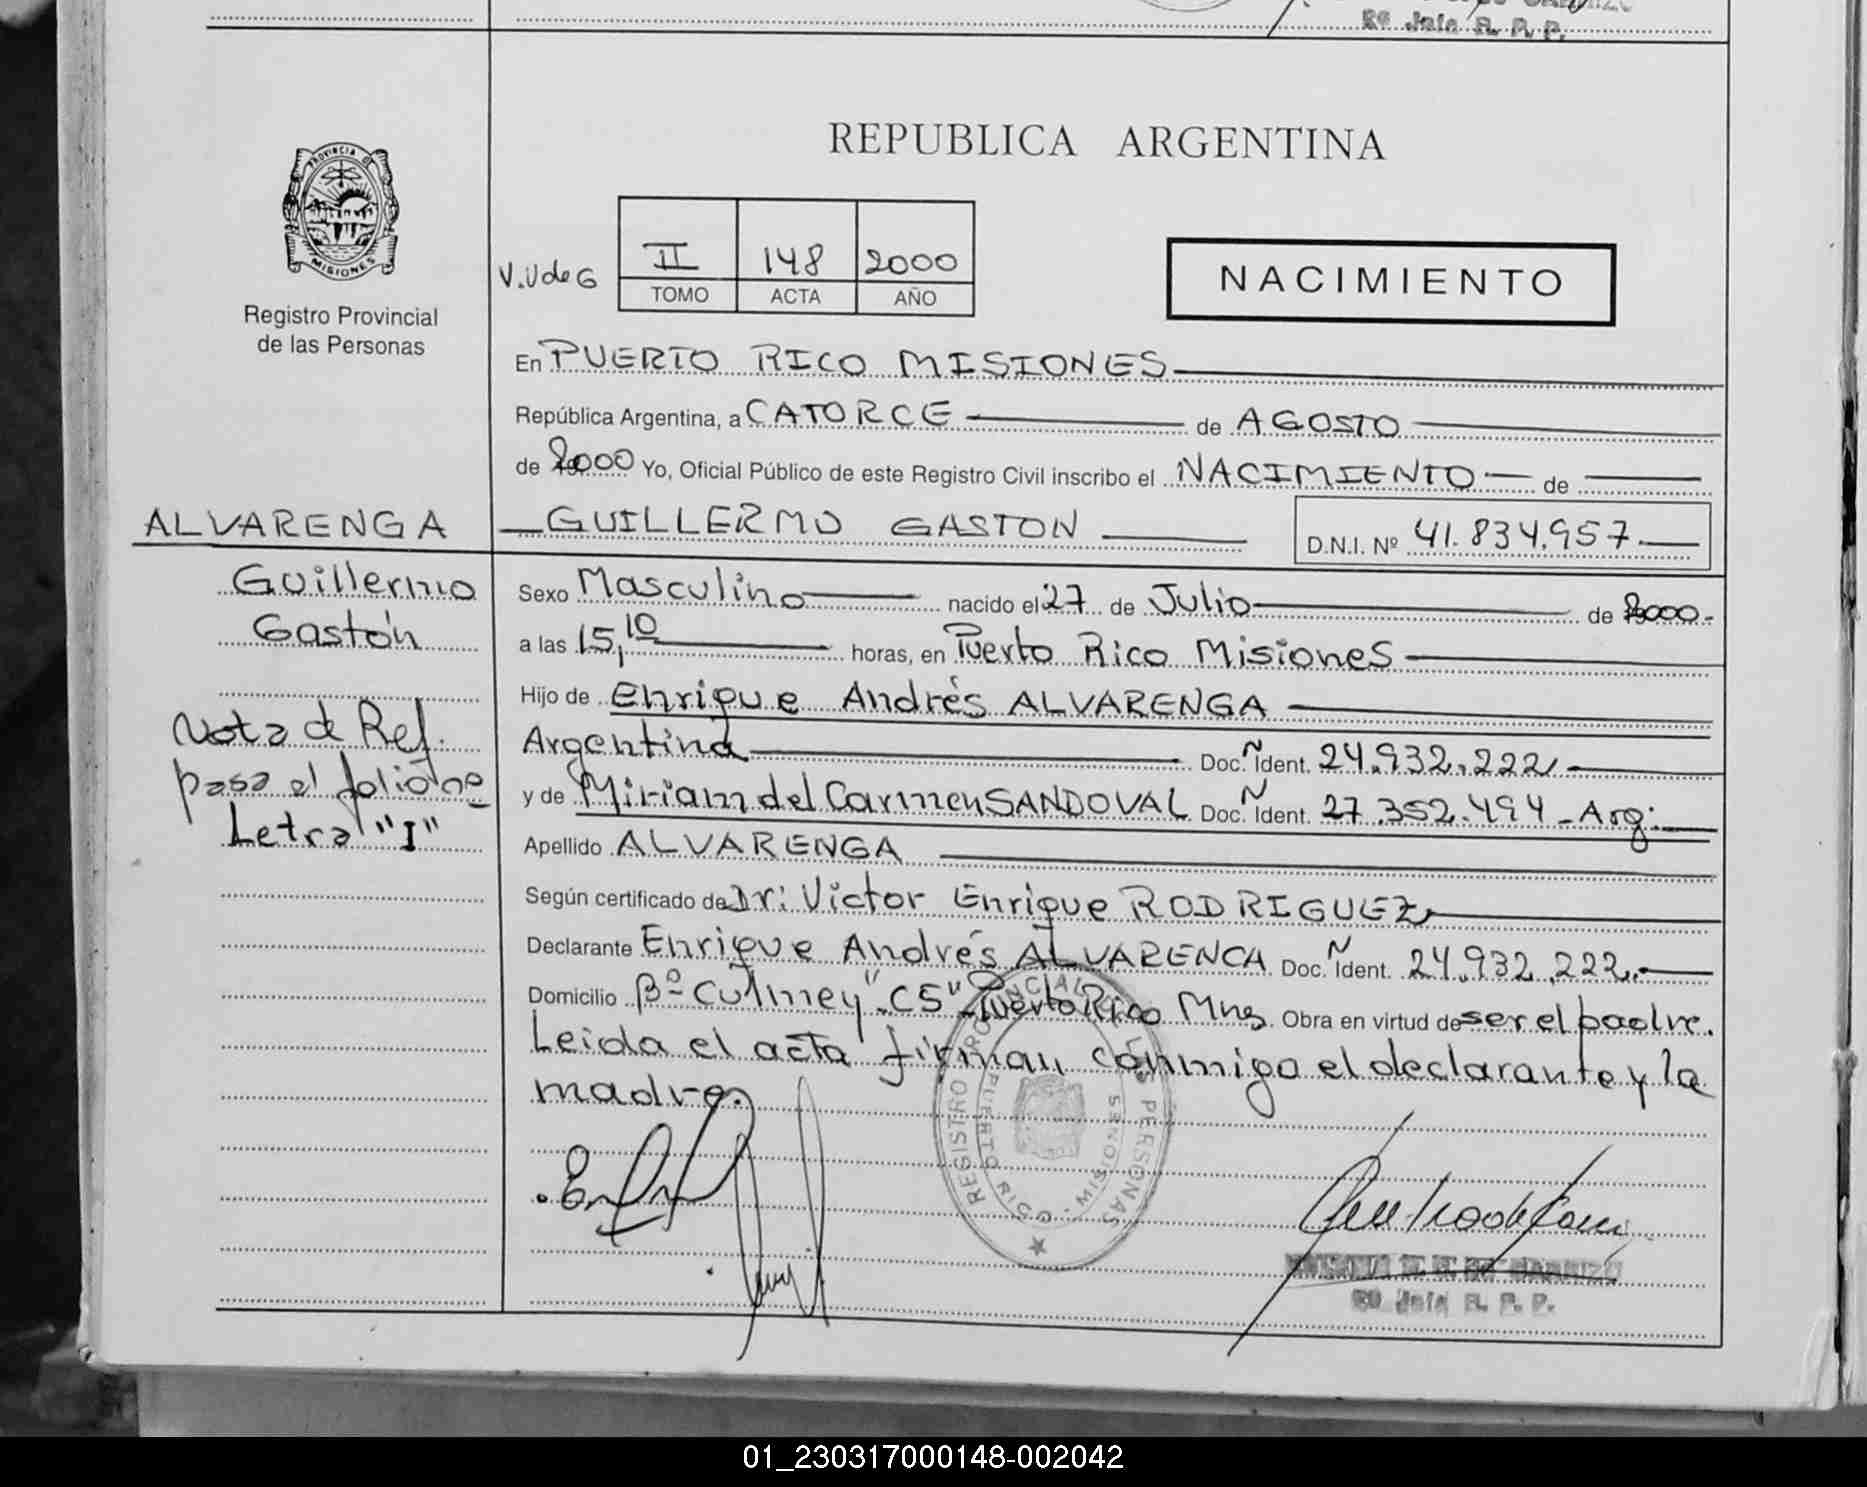 2º Jefe R. P. P.
REPUBLICA ARGENTINA
PROVINCIA DE
MISIONES
Registro Provincial
de las Personas
V.V de G
II 148 2000
TOMO ACTA AÑO
NACIMIENTO
En PUERTO RICO MISIONES
República Argentina, a CATORCE de AGOSTO
de 2000 Yo, Oficial Público de este Registro Civil inscribo el NACIMIENTO de
ALVARENGA GUILLERMO GASTON D.N.I. Nº 41.834.957.
Guillermo
Gastón
Nota de Ref.
pasa al folio
Letra "I"
Sexo Masculino nacido el 27 de Julio de 2000.-
a las 15,10 horas, en Puerto Rico Misiones
Hijo de Enrique Andrés ALVARENGA
Argentina Doc. Ident. 24.932.222
y de Miriam del Carmen SANDOVAL Doc. Ident. 27.352.494 - Arg.
Apellido ALVARENGA
Según certificado de Dr: Victor Enrique RODRIGUEZ
Declarante Enrique Andrés ALVARENGA Doc. Ident. 24.932.222.
Domicilio Bº Culmey "C5" Puerto Rico Mnes. Obra en virtud de ser el padre.
Leida el acta firman conmigo el declarante y la
madre.
REGISTRO PROVINCIAL DE LAS PERSONAS
PUERTO RICO - MISIONES
2º Jefe R. P. P.
01_230317000148-002042